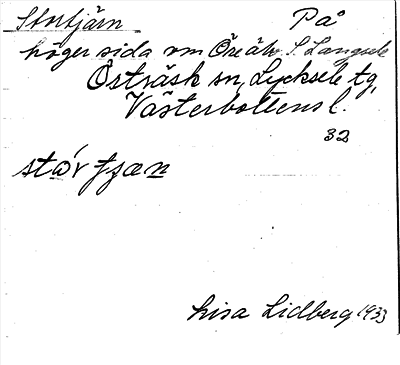 Stortjärn På
höger sida om Öreälv. S. Långsele
Örträsk sn, Lycksele tg,
Västerbottens l.
32
stὼr tjæn
Lisa Lidberg 1933